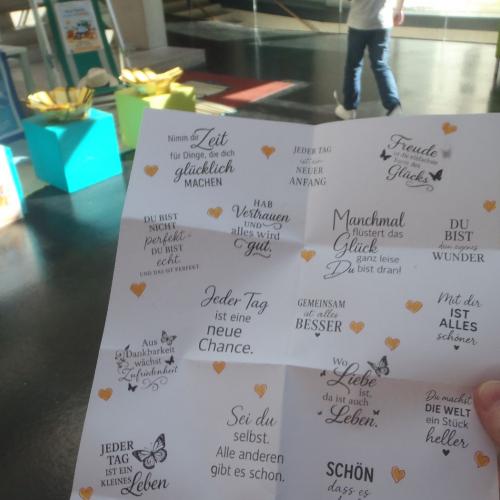 Nimm dir Zeit
für Dinge, die dich
glücklich
MACHEN
JEDER TAG
ist ein
NEUER
ANFANG
Freude
ist die einfachste
Form des
Glücks
DU BIST
NICHT
perfekt-
DU BIST
echt.
UND DAS IST PERFEKT.
HAB
Vertrauen
UND
alles wird
gut.
Manchmal
flüstert das
Glück
ganz leise
Du bist dran!
DU
BIST
dein eigenes
WUNDER
Jeder Tag
ist eine
neue
Chance.
GEMEINSAM
ist alles
BESSER
Mit dir
IST
ALLES
schöner
Aus
Dankbarkeit
wächst
Zufriedenheit
Wo
Liebe
ist,
da ist auch
Leben.
Du machst
DIE WELT
ein Stück
heller
JEDER
TAG
IST EIN
KLEINES Leben
Sei du
selbst.
Alle anderen
gibt es schon.
SCHÖN
dass es